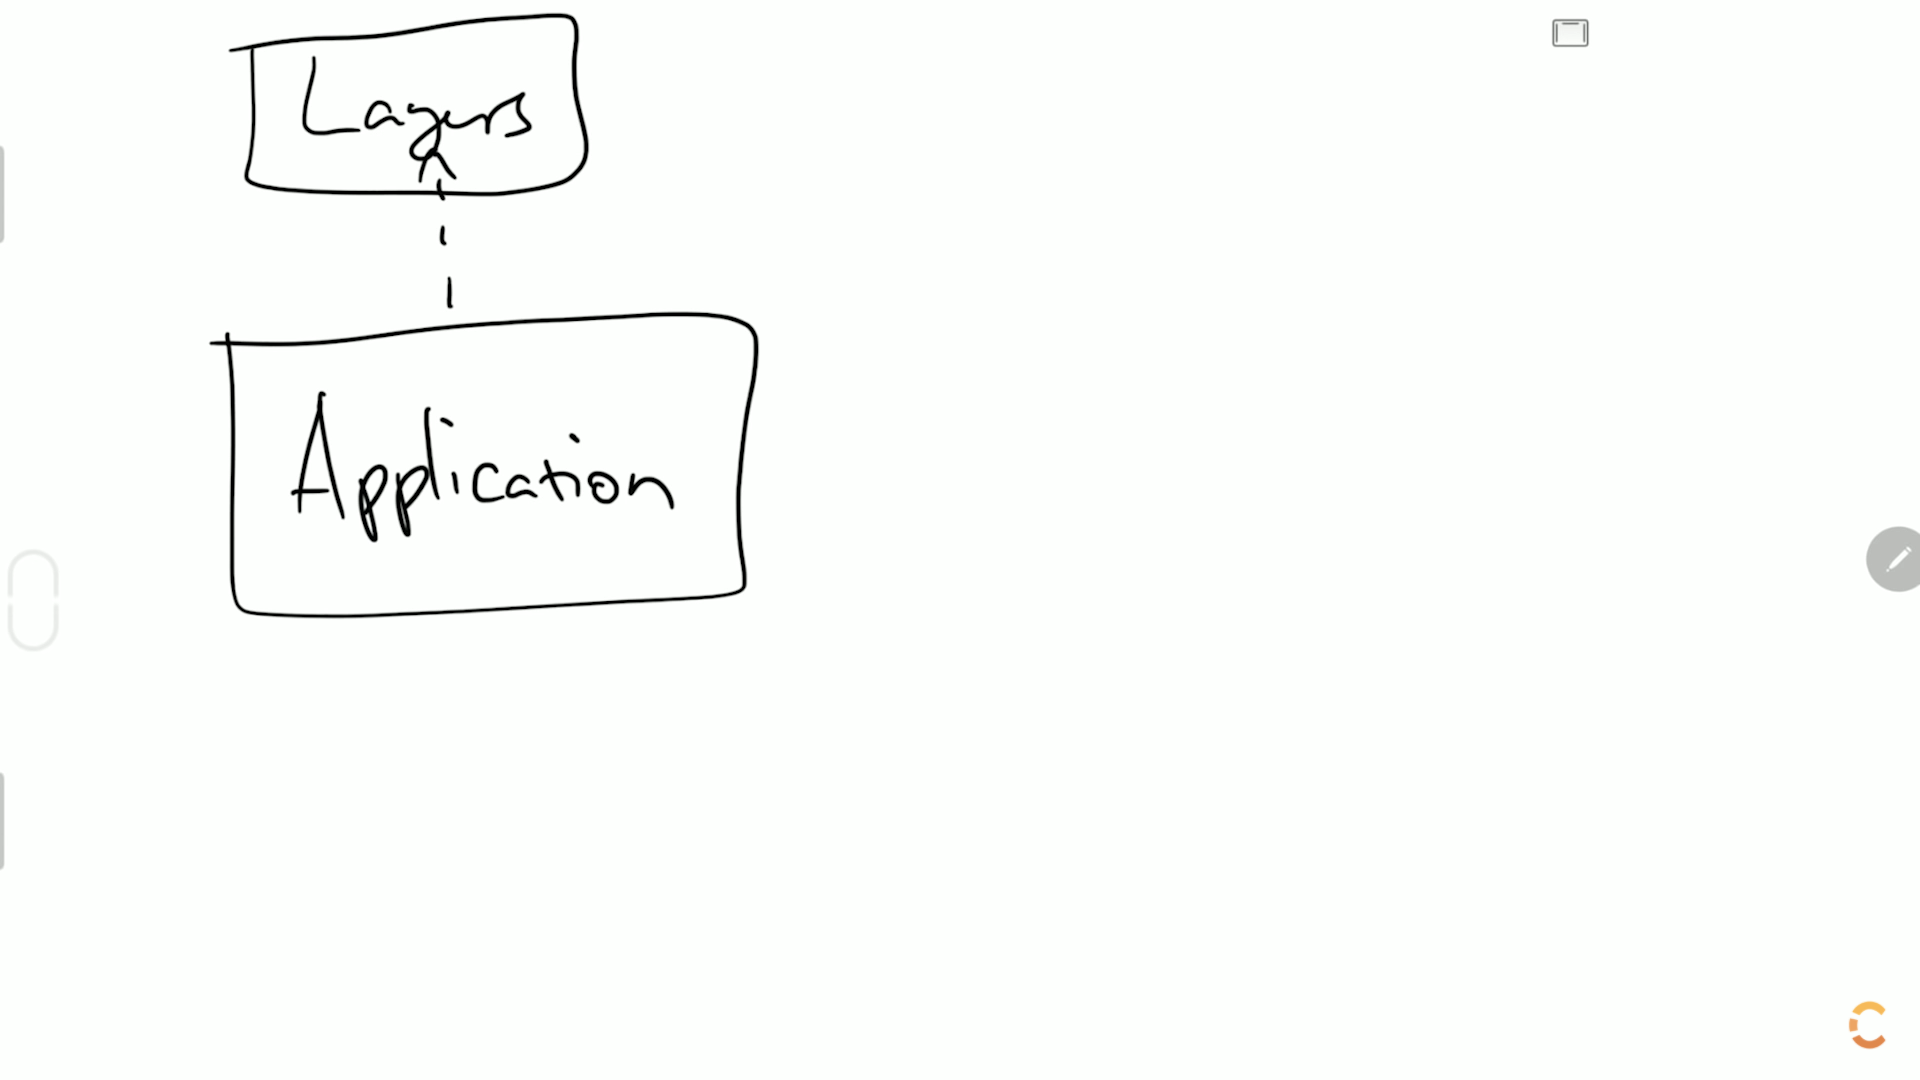 Layers
Application